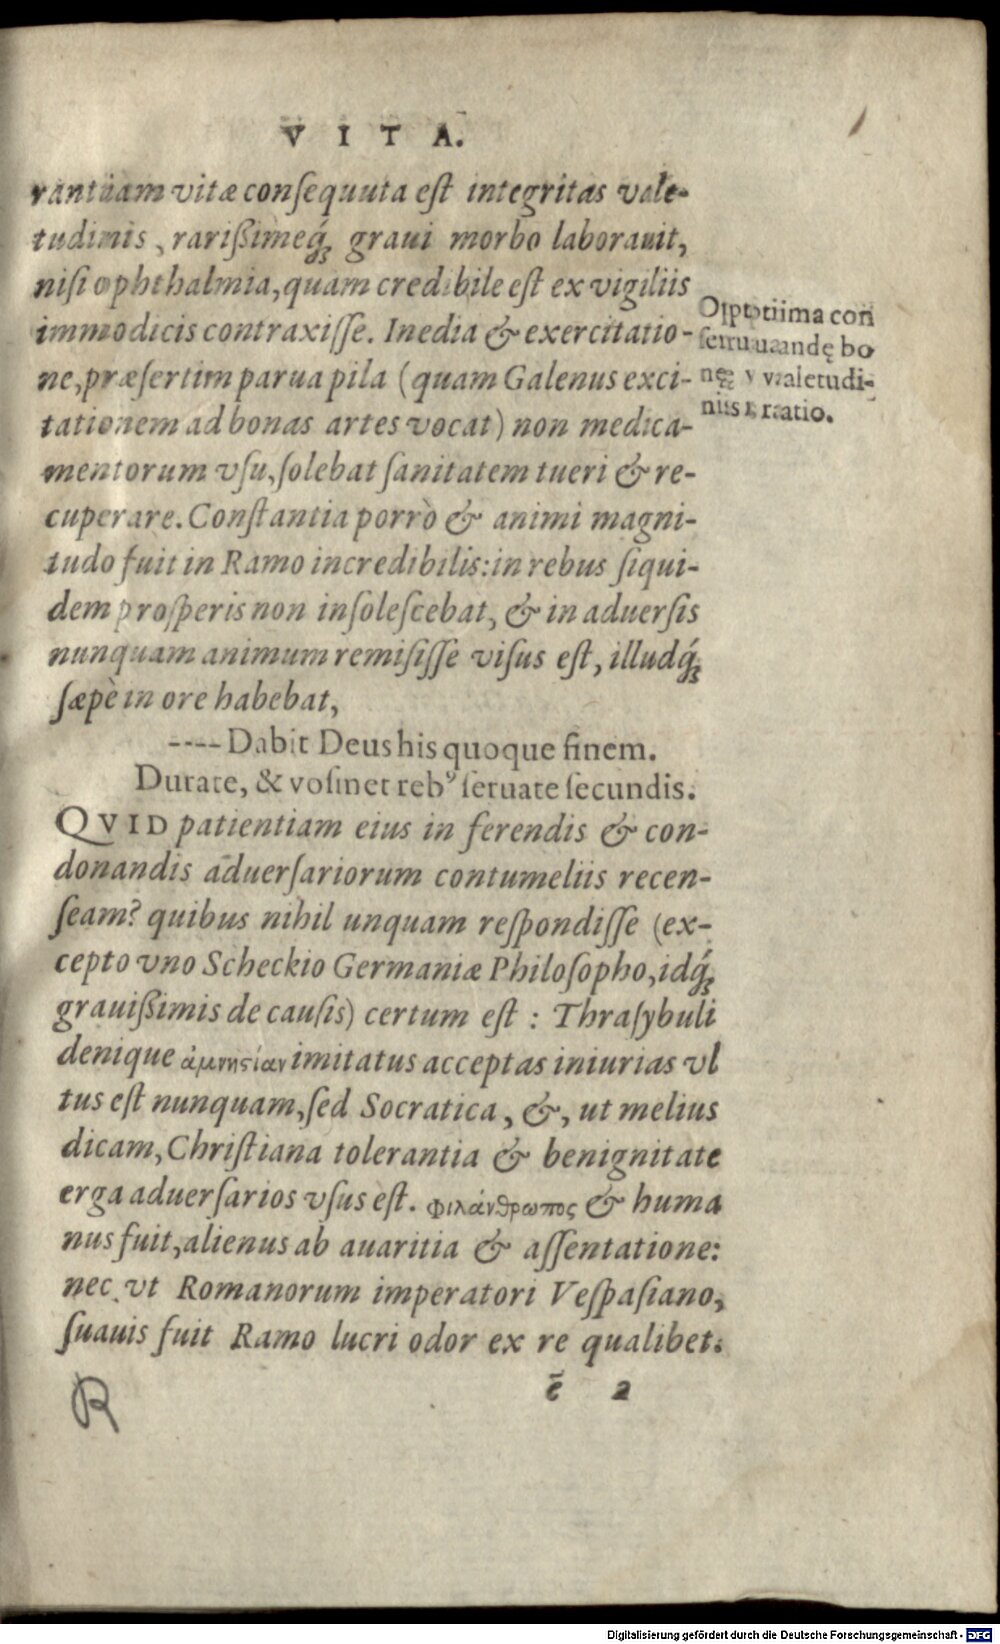 VITA.
rantiam vitæ conſequuta est integritas vale-
tudinis, rarißimeq́ꝫ graui morbo laborauit,
niſi ophthalmia, quam credibile est ex vigiliis
immodicis contraxiſſe. Inedia & exercitatio-
ne, præſertim parua pila (quam Galenus exci-
tationem ad bonas artes vocat) non medica-
mentorum vſu, ſolebat ſanitatem tueri & re-
cuperare. Constantia porrò & animi magni-
tudo fuit in Ramo incredibilis: in rebus ſiqui-
dem proſperis non inſoleſcebat, & in aduerſis
nunquam animum remiſiſſe viſus est, illudq́ꝫ
ſæpè in ore habebat,
---- Dabit Deus his quoque finem.
Durate, & voſmet rebꝰ ſeruate ſecundis.
QVID patientiam eius in ferendis & con-
donandis aduerſariorum contumeliis recen-
ſeam? quibus nihil unquam reſpondiſſe (ex-
cepto vno Scheckio Germaniæ Philoſopho, idq́ꝫ
grauißimis de cauſis) certum est : Thraſybuli
denique ἀμνηστίαν imitatus acceptas iniurias vl
tus est nunquam, ſed Socratica, &, ut melius
dicam, Christiana tolerantia & benignitate
erga aduerſarios vſus est. φιλάνθρωπος & huma
nus fuit, alienus ab auaritia & aſſentatione:
nec vt Romanorum imperatori Veſpaſiano,
ſuauis fuit Ramo lucri odor ex re qualibet.
ē 2
Optima con
ſeruandę bo
nę valetudi-
nis ratio.
R
Digitalisierung gefördert durch die Deutsche Forschungsgemeinschaft - DFG